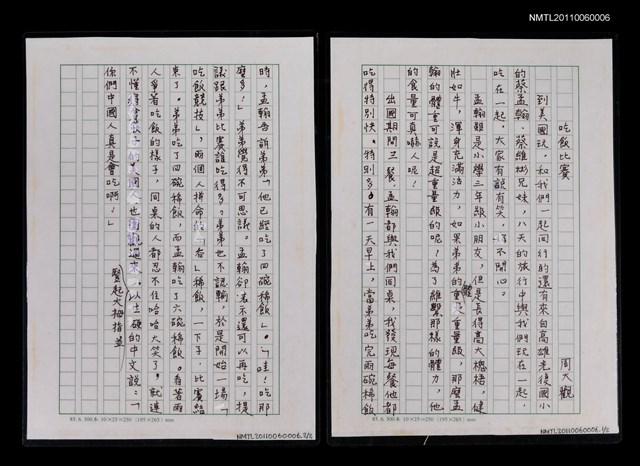 NMTL20110060006
吃飯比賽
周大觀
到美國玩，和我們一起同行的還有來自高雄光復國小
的蔡孟翰、蔡維彬兄妹，八天的旅行中與我們玩在一起，
吃在一起，大家有說有笑，好不開心。
孟翰雖是小學三年級小朋友，但是長得高大穩梧，健
壯如牛，渾身充滿活力，如果弟弟的體重是重量級，那麼孟
翰的體重可說是超重量級的呢！為了維繫那樣的體力，他
的食量可真嚇人呢！
出國期間三餐，孟翰都與我們同桌，我發現每餐他都
吃得特別快、特別多。有一天早上，當弟弟吃完兩碗稀飯
83.6.300.本 10×25=250 (195×265) mm
NMTL20110060006.1/2
時，孟翰告訴弟弟「他已經吃了四碗稀飯」。「哇！吃那
麼多！」弟弟覺得不可思議。孟翰卻表示還可以再吃，提
議跟弟弟比賽誰吃得多。弟弟也不認輸，於是開始一場「
吃飯競技」，兩個人拚命「香」稀飯，一下子，比賽結
束了。弟弟吃了四碗稀飯，而孟翰吃了六碗稀飯。看著兩
人爭著吃飯的樣子，同桌的人都忍不住哈哈大笑了，就連
不懂的美國人也圍觀過來，以生硬的中文說：「
豎起大拇指並
你們中國人真是會吃啊！」
83.6.300.本 10×25=250 (195×265) mm
NMTL20110060006.2/2